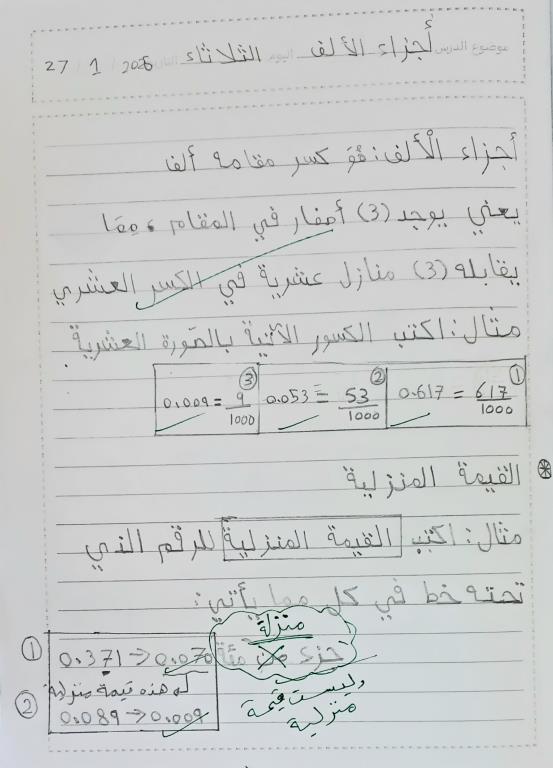 موضوع الدرس أجزاء الألف اليوم الثلاثاء 27 / 1 / 2026
أجزاء الألف: هُوَ كسر مقامه ألف
يعني يوجد (3) أصفار في المقام، مِمَا
يقابله (3) منازل عشرية في الكسر العشري
مثال: اكتب الكسور الآتية بالصّورة العشرية.
① 617/1000 = 0.617 ② 53/1000 = 0.053 ③ 9/1000 = 0.009
⊛ القيمة المنزلية
مثال: اكتب القيمة المنزلية للرقم الذي
تحته خط في كل مما يأتي:
منزلة
① 0.371 → 0.070 جزء من مئة
هذه قيمة منزلية
وليست قيمة
منزلية
② 0.089 → 0.009